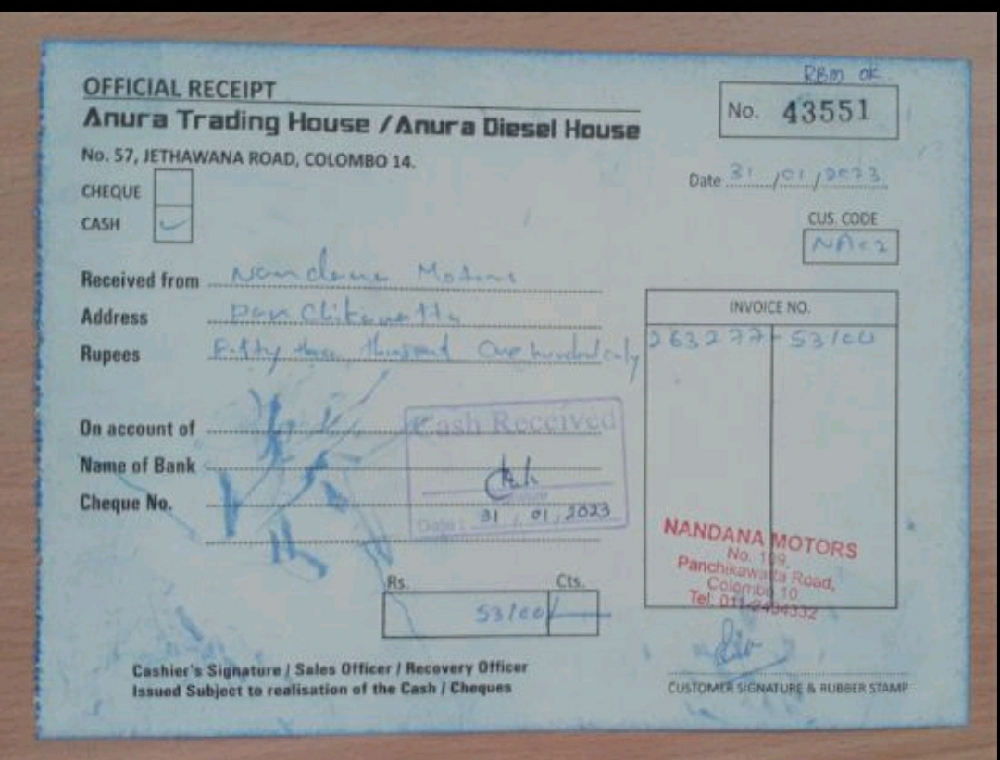 RBM OK
OFFICIAL RECEIPT
Anura Trading House / Anura Diesel House
No. 43551
No. 57, JETHAWANA ROAD, COLOMBO 14.
Date 31/01/2023
CHEQUE
CASH
CUS. CODE
Received from Nandana Motors
Address
Rupees Fifty three thousand One hundred only
INVOICE NO.
263277 - 53100
On account of
Cash Received
Name of Bank
Cheque No.
Date : 31, 01, 2023
NANDANA MOTORS
No. 109,
Panchikawatta Road,
Colombo 10.
Tel: 011-2434332
Rs. Cts.
53100/
Cashier's Signature / Sales Officer / Recovery Officer
Issued Subject to realisation of the Cash / Cheques
CUSTOMER SIGNATURE & RUBBER STAMP